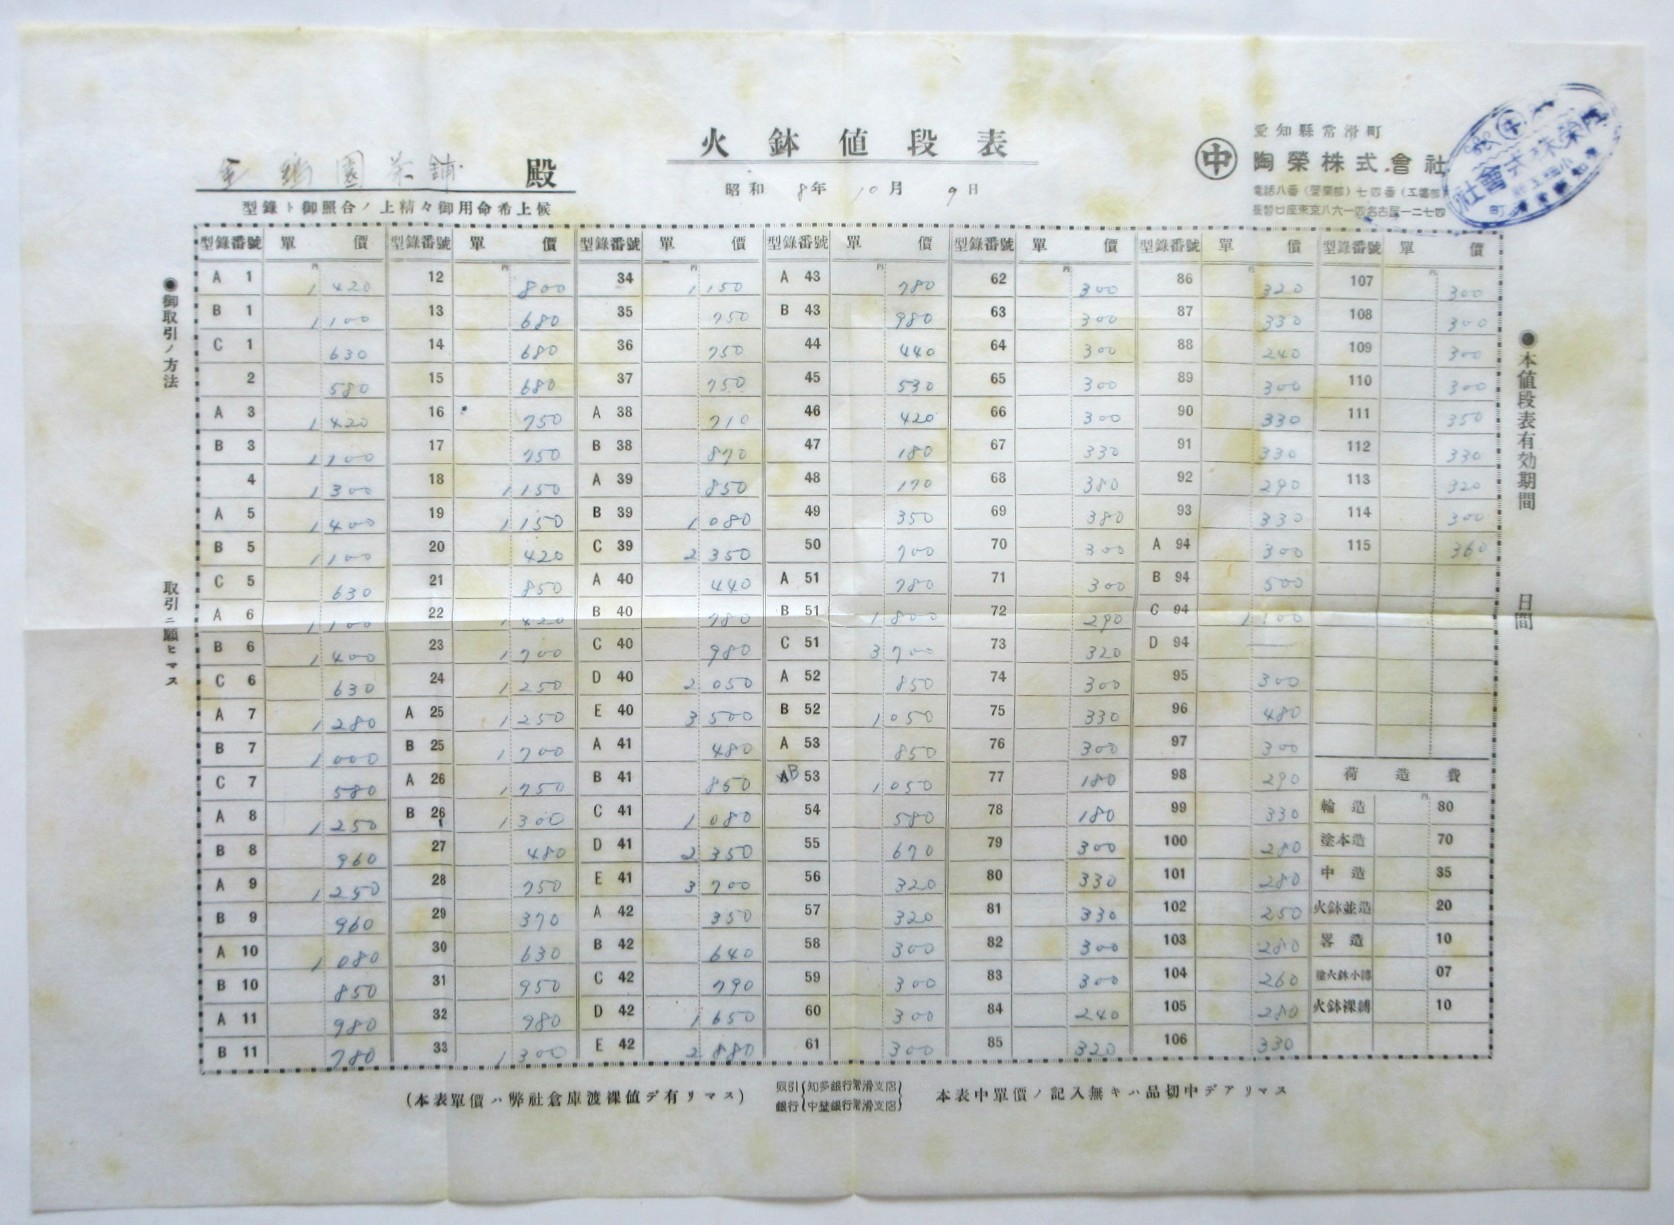 火鉢値段表
昭和 8年 10月 9日
園茶舖 殿
型錄ト御照合ノ上精々御用命希上候
愛知縣常滑町
中 陶榮株式會社
電話八番(營業部)七四番(工場部)
振替口座東京八六一四名古屋一二七四
●御取引ノ方法 取引ニ願ヒマス
●本値段表有効期間 日間
型錄番號 單價 型錄番號 單價 型錄番號 單價 型錄番號 單價 型錄番號 單價 型錄番號 單價 型錄番號 單價
A 1 1 420 12 800 34 1 150 A 43 780 62 300 86 320 107 300
B 1 1 100 13 680 35 750 B 43 980 63 300 87 330 108 300
C 1 630 14 680 36 750 44 440 64 300 88 240 109 300
2 580 15 680 37 750 45 530 65 300 89 300 110 300
A 3 1 420 16 750 A 38 710 46 420 66 300 90 330 111 350
B 3 1 100 17 750 B 38 870 47 180 67 330 91 330 112 330
4 1 300 18 1 150 A 39 850 48 170 68 380 92 290 113 320
A 5 1 400 19 1 150 B 39 1 080 49 350 69 380 93 330 114 300
B 5 1 100 20 420 C 39 2 350 50 700 70 300 A 94 300 115 360
C 5 630 21 850 A 40 440 A 51 780 71 300 B 94 500
A 6 1 100 22 1 420 B 40 780 B 51 1 800 72 290 C 94 1 100
B 6 1 400 23 1 700 C 40 980 C 51 3 700 73 320 D 94 —
C 6 630 24 1 250 D 40 2 050 A 52 850 74 300 95 300
A 7 1 280 A 25 1 250 E 40 3 500 B 52 1 050 75 330 96 480
B 7 1 000 B 25 1 700 A 41 480 A 53 850 76 300 97 300
C 7 580 A 26 1 750 B 41 850 B 53 1 050 77 180 98 290 荷造費
A 8 1 250 B 26 1 300 C 41 1 080 54 580 78 180 99 330 輪造 80
B 8 960 27 480 D 41 2 350 55 670 79 300 100 280 塗本造 70
A 9 1 250 28 750 E 41 3 700 56 320 80 330 101 280 中造 35
B 9 960 29 370 A 42 350 57 320 81 330 102 250 火鉢並造 20
A 10 1 080 30 630 B 42 640 58 300 82 300 103 280 畧造 10
B 10 850 31 950 C 42 790 59 300 83 300 104 260 塗火鉢小縛 07
A 11 980 32 980 D 42 1 650 60 300 84 240 105 280 火鉢裸縛 10
B 11 780 33 1 300 E 42 2 880 61 300 85 320 106 330
(本表單價ハ弊社倉庫渡裸値デ有リマス)
取引銀行 知多銀行常滑支店 中埜銀行常滑支店
本表中單價ノ記入無キハ品切中デアリマス